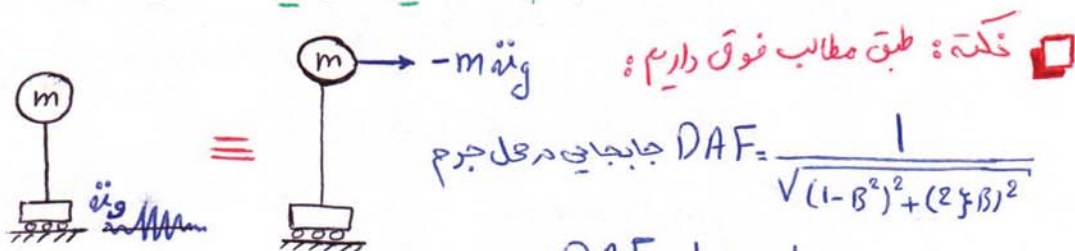 نکته: طبق مطالب فوق داریم:
m → -m üg
m ≡
üg
DAF جابجایی در محل جرم = 1 / √((1-β²)²+(2ξβ)²)